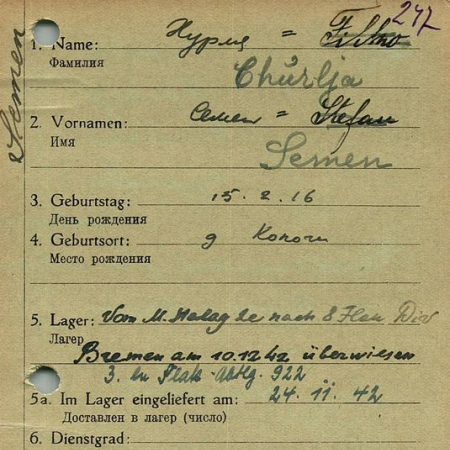 247
Semen
1. Name: Хурля = Filko
Фамилия
Churlja
2. Vornamen: Семен = Stefan
Имя
Semen
3. Geburtstag: 15. 2. 16
День рождения
4. Geburtsort: д
Место рождения
5. Lager: Vom M. Stalag nach 8 Flak Div
Лагер
Bremen am 10.12.42 überwiesen
3. Flak-Abtlg. 922
5a. Im Lager eingeliefert am: 24. 11. 42
Доставлен в лагер (число)
6. Dienstgrad: